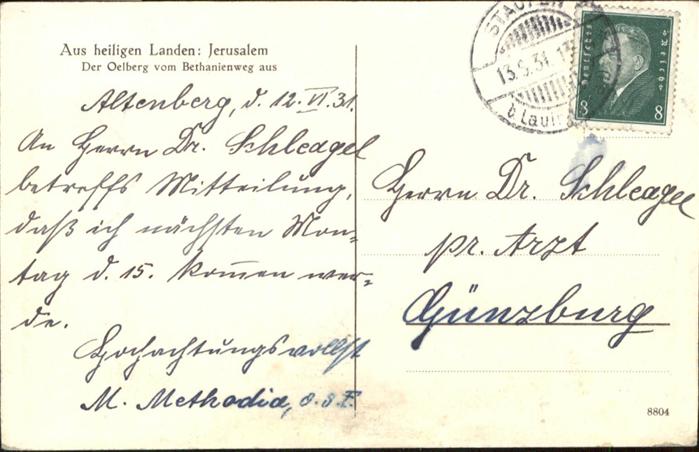 Aus heiligen Landen: Jerusalem
Der Oelberg vom Bethanienweg aus
Altenberg, d. 12. VI. 31.
An Herrn Dr. Schleagel
betreffs Mitteilung,
daß ich nächsten Mon-
tag d. 15. kom̅en wer-
de.
Hochachtungsvollst
M. Methodia, O.S.F.
STAUFEN
13.6.31. 13
Deutsches Reich
8 8
Herrn Dr. Schleagel
pr. Arzt
Günzburg
8804